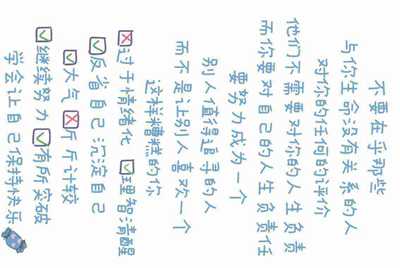 不要在乎那些
与你生命没有关系的人
对你的任何的评价
他们不需要对你的人生负责
而你要对自己的人生负责任
要努力成为一个
别人值得追寻的人
而不是让别人喜欢一个
这样糟糕的你
过于情绪化 理智清醒
反省自己 沉淀自己
大气 斤斤计较
继续努力 有所突破
学会让自己保持快乐